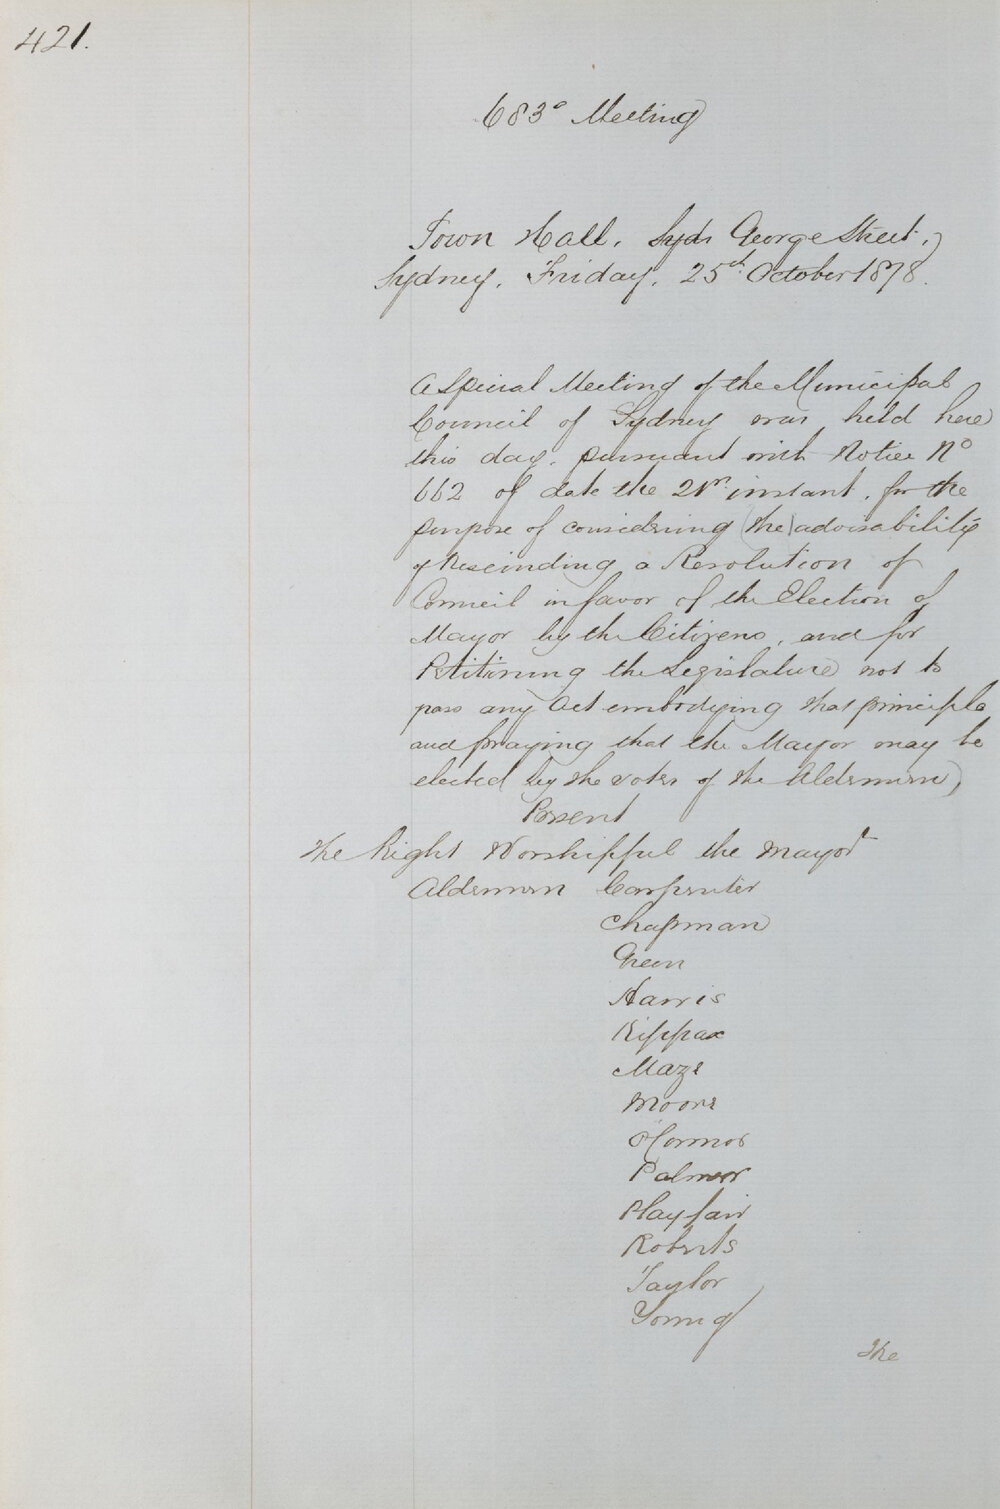 421.
683º Meeting
Town Hall, Syds George Street,
Sydney, Friday, 25th October 1878.
A Special Meeting of the Municipal
Council of Sydney was held here
this day, pursuant with Notice No
662 of date the 21st instant, for the
purpose of considering (the advisability
of Rescinding a Resolution of
Council in favor of the Election of
Mayor by the Citizens, and for
Petitioning the Legislature not to
pass any Act embodying that principle
and praying that the Mayor may be
elected by the votes of the Aldermen)
Present
The Right Worshipful the Mayor
Aldermen Carpenter
Chapman
Green
Harris
Kippax
Maze
Moore
Palmer
Playfair
Roberts
Taylor
Young
The